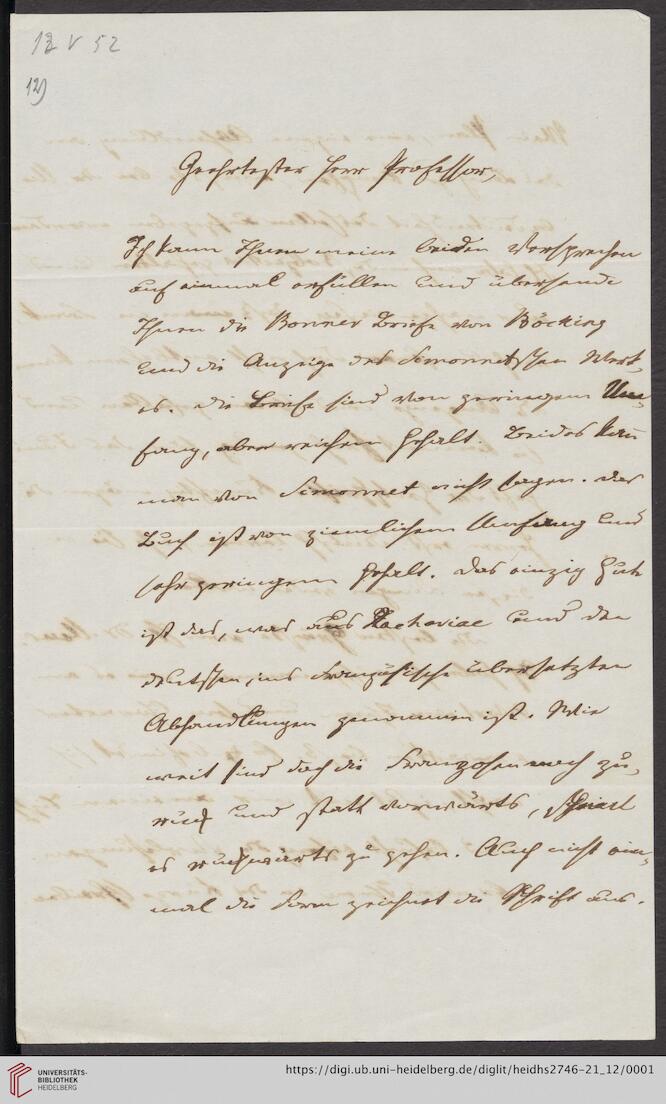 12 V 52
12)
Geehrtester Herr Professor,
Ich kann Ihnen meine beiden Versprechen
auf einmal erfüllen und übersende
Ihnen die Bonner Briefe von Böcking
und die Anzeige des Simonnetschen Werk-
es. Die Briefe sind von geringem Um-
fang, aber reichem Gehalt. Beides kan
man von Simonnet nicht sagen. Das
Buch ist von ziemlichem Umfang und
sehr geringem Gehalt. Das einzig Gute
ist das, was aus Zachariae und den
deutschen, ins Französische übersetzten
Abhandlungen genommen ist. Wie
weit sind doch die Franzosen noch zu-
rück und statt vorwärts, scheint
es rückwärts zu gehen. Auch nicht ein-
mal die Form zeichnet die Schrift aus.
UNIVERSITÄTS-
BIBLIOTHEK
HEIDELBERG
https://digi.ub.uni-heidelberg.de/diglit/heidhs2746-21_12/0001